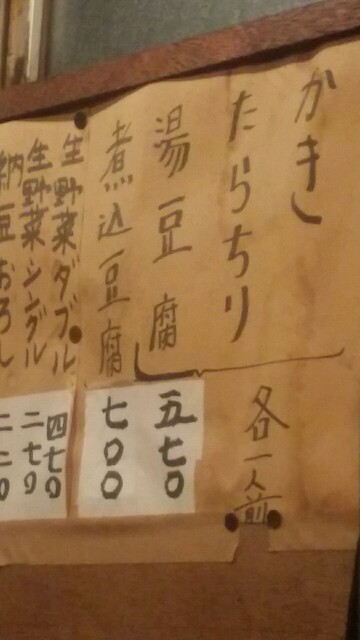 かき
たらちり
湯豆腐
各一人前
五七〇
煮込豆腐
七〇〇
生野菜ダブル
四七〇
生野菜シングル
二七〇
納豆おろし
二二〇